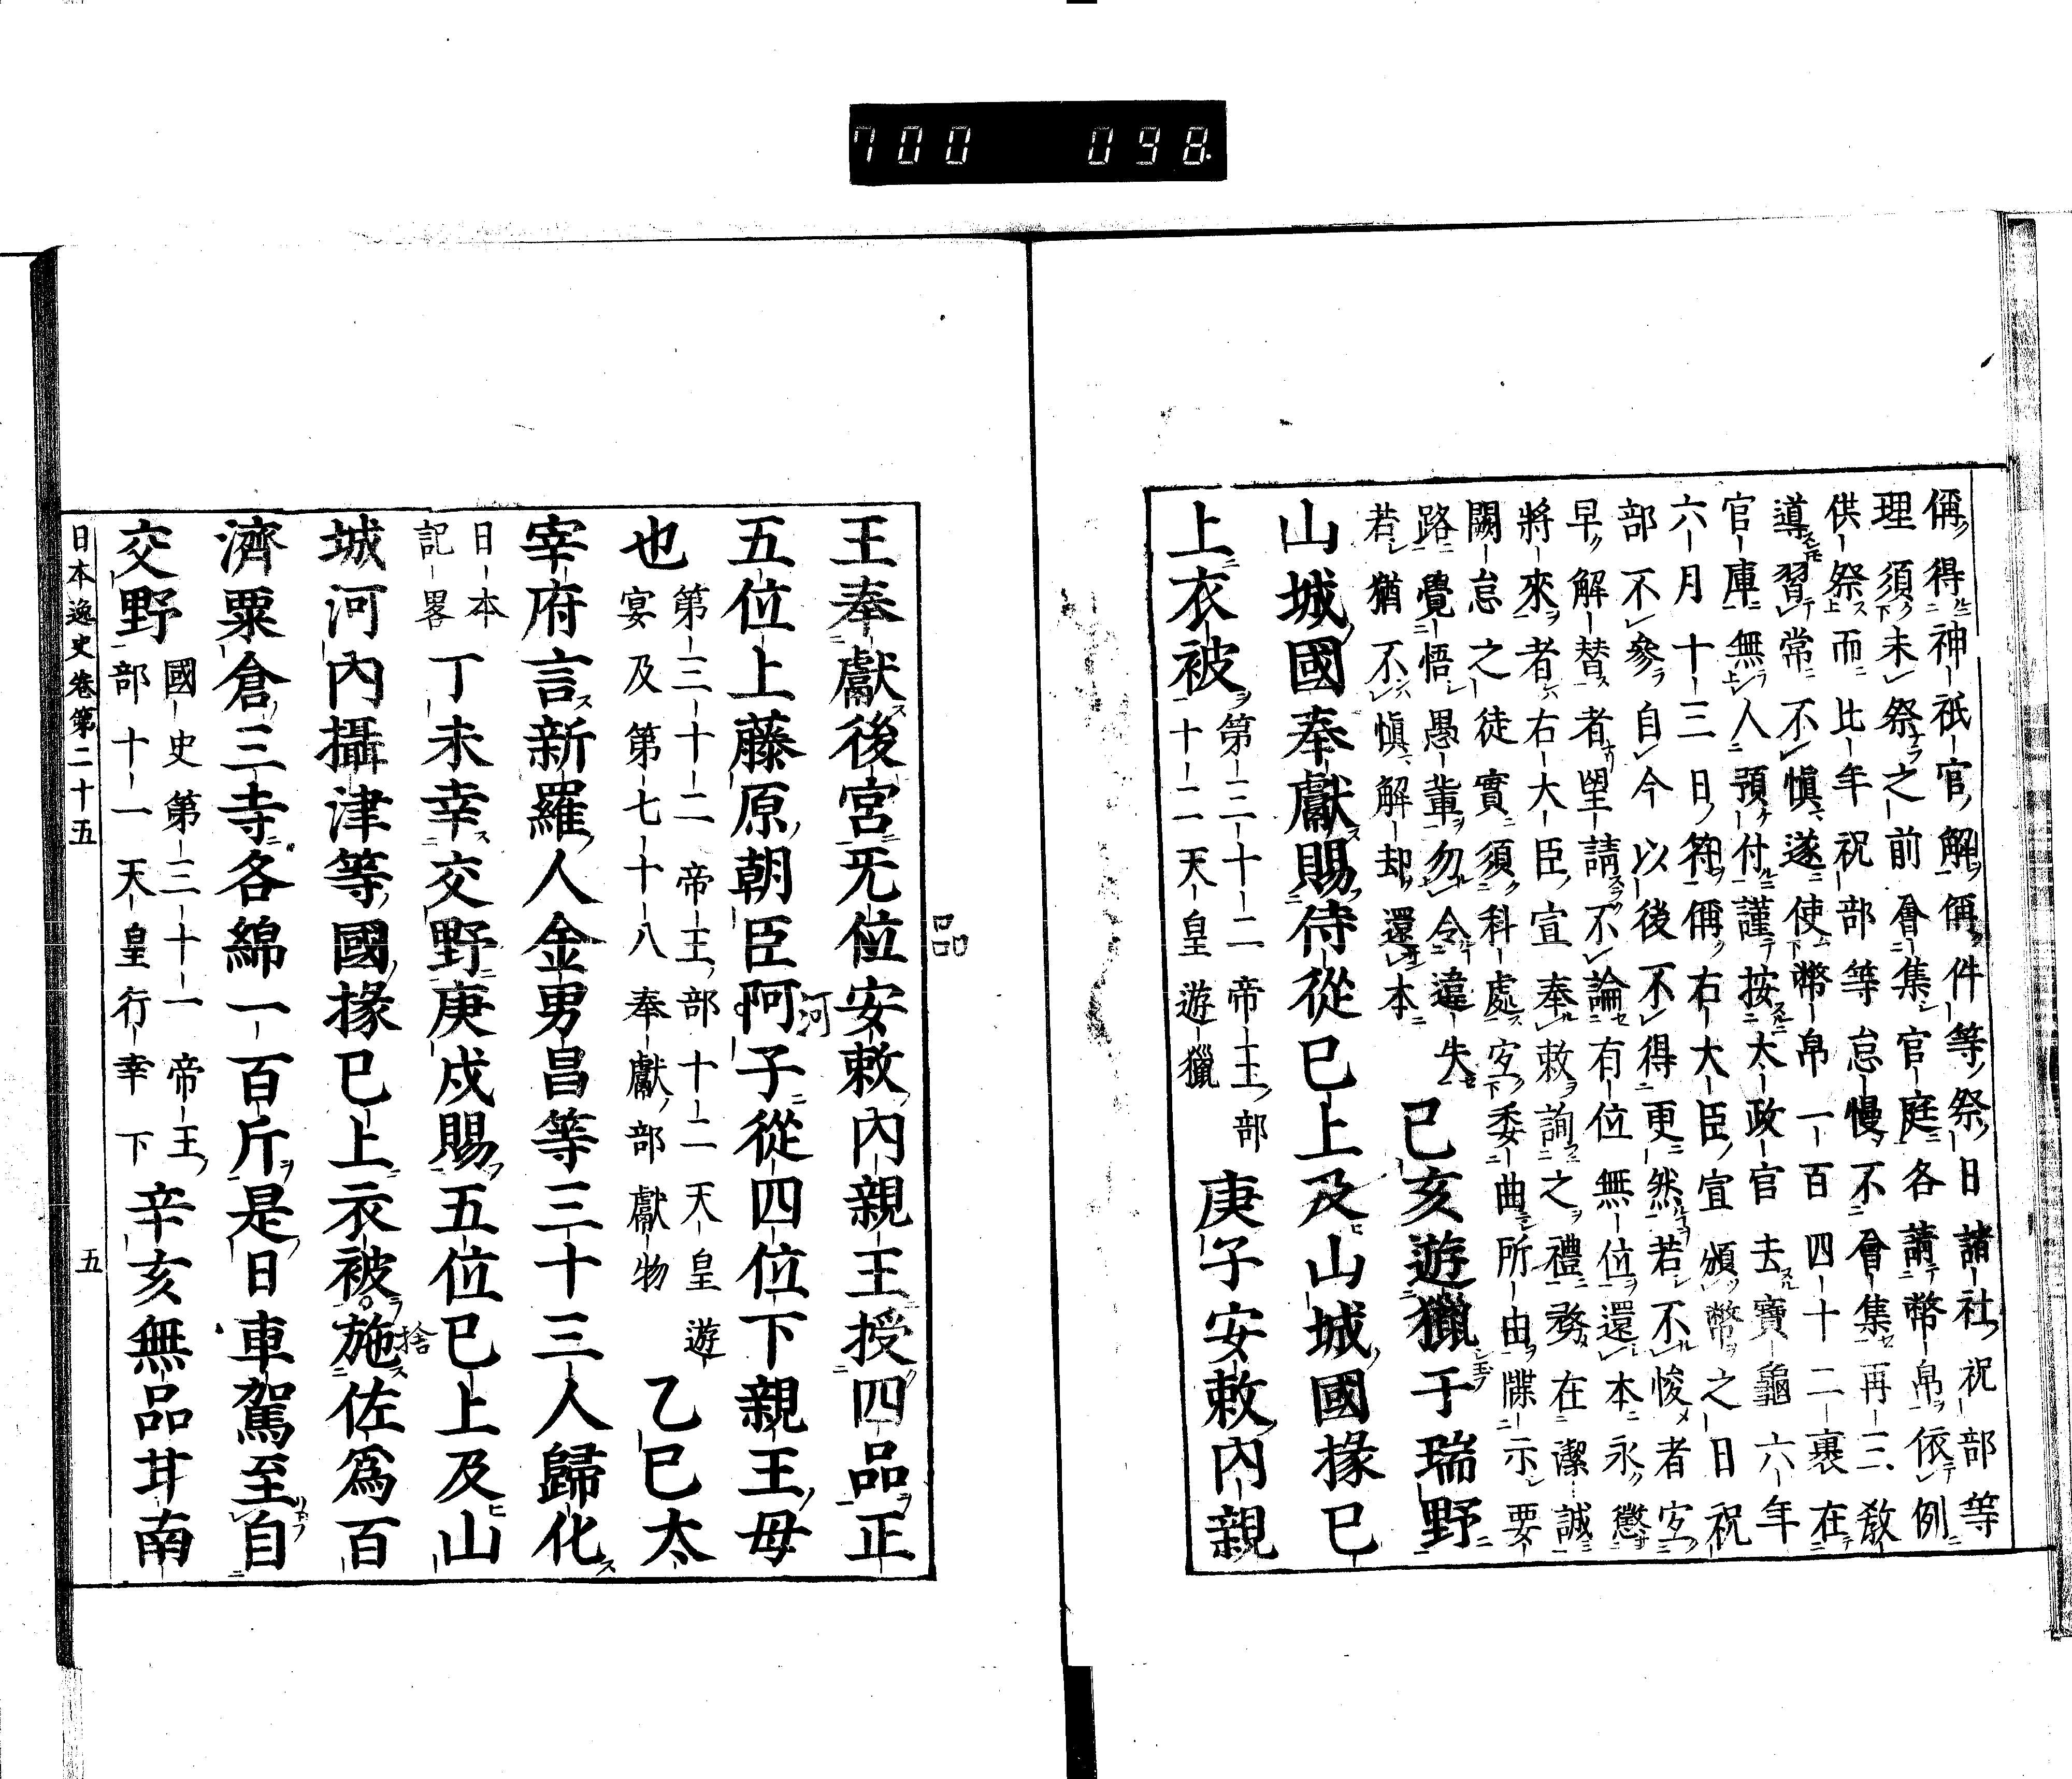 700 098
偁得神祇官解偁件等祭日諸社祝部等
理須未祭之前會集官庭各請幣帛依例
供祭而比年祝部等怠慢不會集再三教
導習常不愼遂使幣帛一百四十二裹在
官庫無人預付謹按太政官去寶龜六年
六月十三日符偁右大臣宣頒幣之日祝
部不參自今以後不得更然若不悛者㝎
早解替者望請不論有位無位還本永懲
將來者右大臣宣奉敕詢之禮務在潔誠
闕怠之徒實須科處㝎委曲所由牒示要
路覺悟愚輩勿令違失
若猶不愼解却還本
己亥遊獵于瑞野
山城國奉獻賜侍從已上及山城國掾已
上衣被
第三十二帝王部
十二天皇遊獵
庚子安敕內親
王奉獻後宮无位安敕內親王授四品正
品
五位上藤原朝臣阿子從四位下親王母
河
也
第三十二帝王部十二天皇遊
宴及第七十八奉獻部獻物
乙巳太
宰府言新羅人金男昌等三十三人歸化
日本
記畧
丁未幸交野庚戍賜五位已上及山
城河內攝津等國掾已上衣被施佐爲百
捨
濟粟倉三寺各綿一百斤是日車駕至自
交野
國史第三十一帝王
部十一天皇行幸下
辛亥無品芽南
日本逸史卷第二十五
五